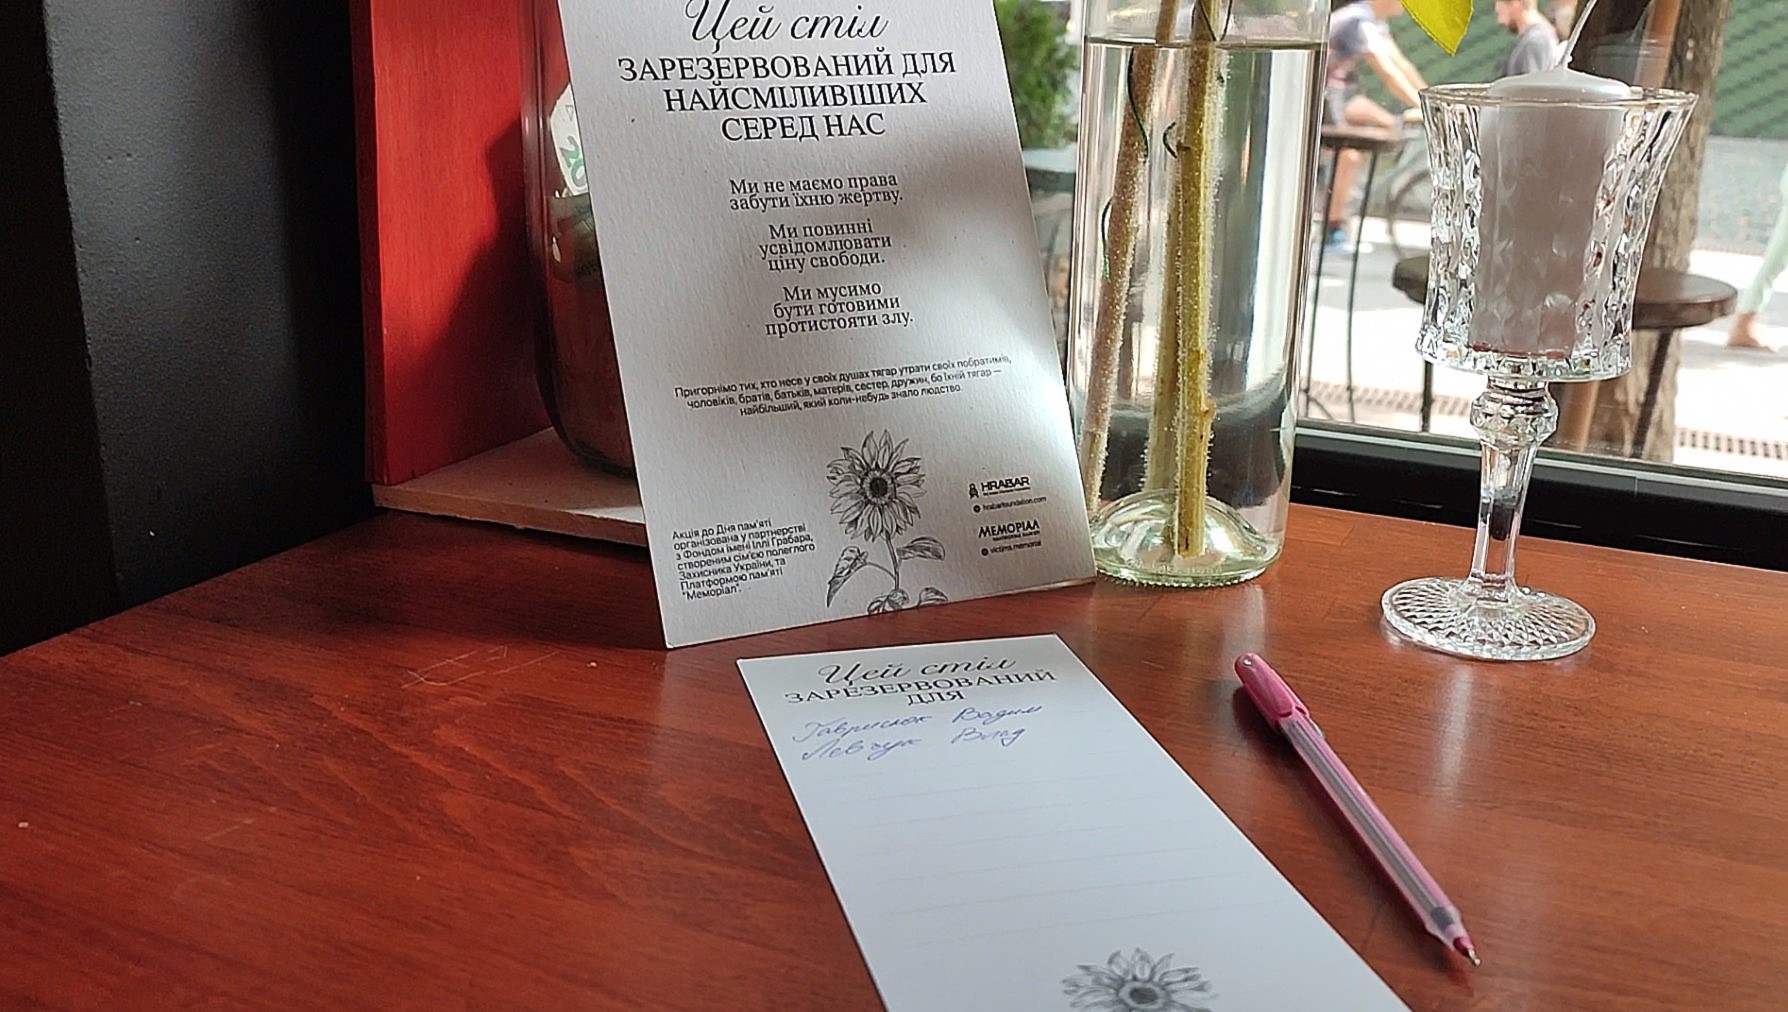 Цей стіл
ЗАРЕЗЕРВОВАНИЙ ДЛЯ
НАЙСМІЛИВІШИХ
СЕРЕД НАС
Ми не маємо права
забути їхню жертву.
Ми повинні
усвідомлювати
ціну свободи.
Ми мусимо
бути готовими
протистояти злу.
Пригорнімо тих, хто несе у своїх душах тягар утрати своїх побратимів,
чоловіків, братів, батьків, матерів, сестер, дружин, бо їхній тягар —
найбільший, який коли-небудь знало людство.
Акція до Дня пам'яті
організована у партнерстві
з Фондом імені Іллі Грабара,
створеним сім'єю полеглого
Захисника України, та
Платформою пам'яті
"Меморіал".
HRABAR
hrabarfoundation.com
МЕМОРІАЛ
victims.memorial
Цей стіл
ЗАРЕЗЕРВОВАНИЙ
ДЛЯ
Гаврилюк Вадим
Левчук Влад